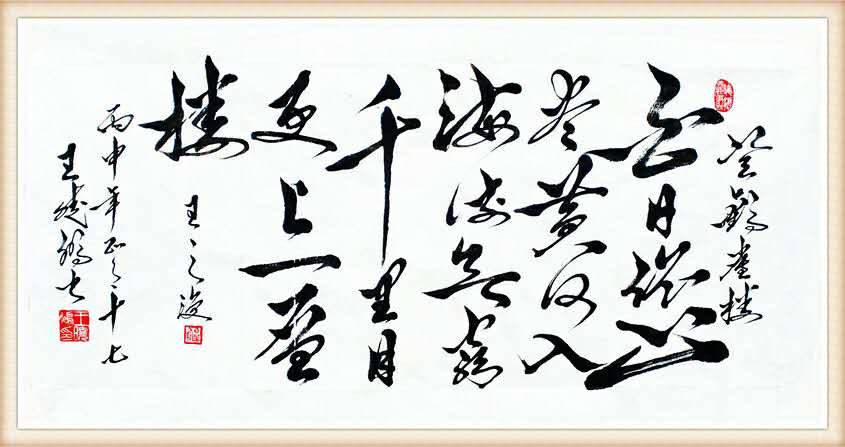 登鹳雀楼
白日依山
尽黄河入
海流欲穷
千里目
更上一层
楼
王之涣
丙申年二十七
王书